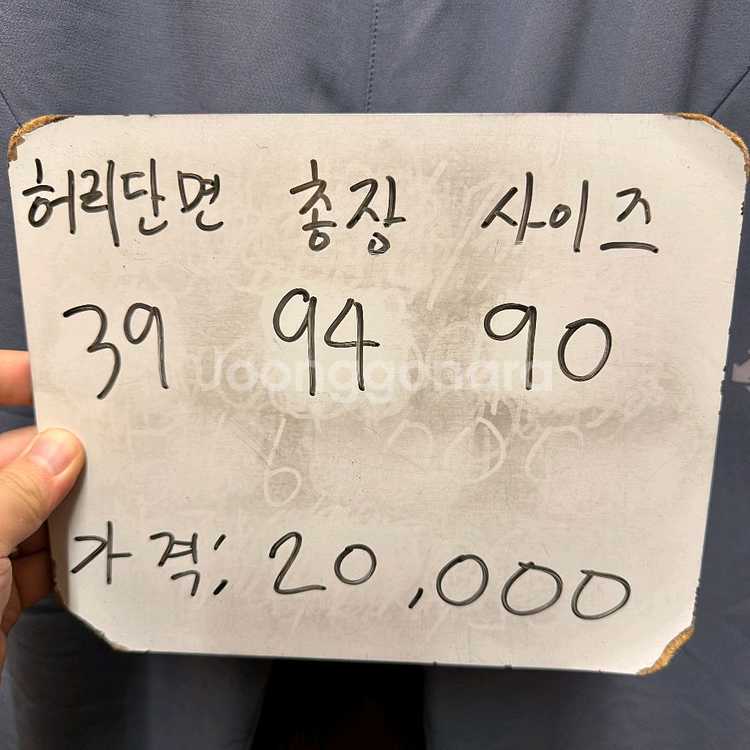 허리단면 총장 사이즈
39 94 90
Joonggonara
가격; 20,000